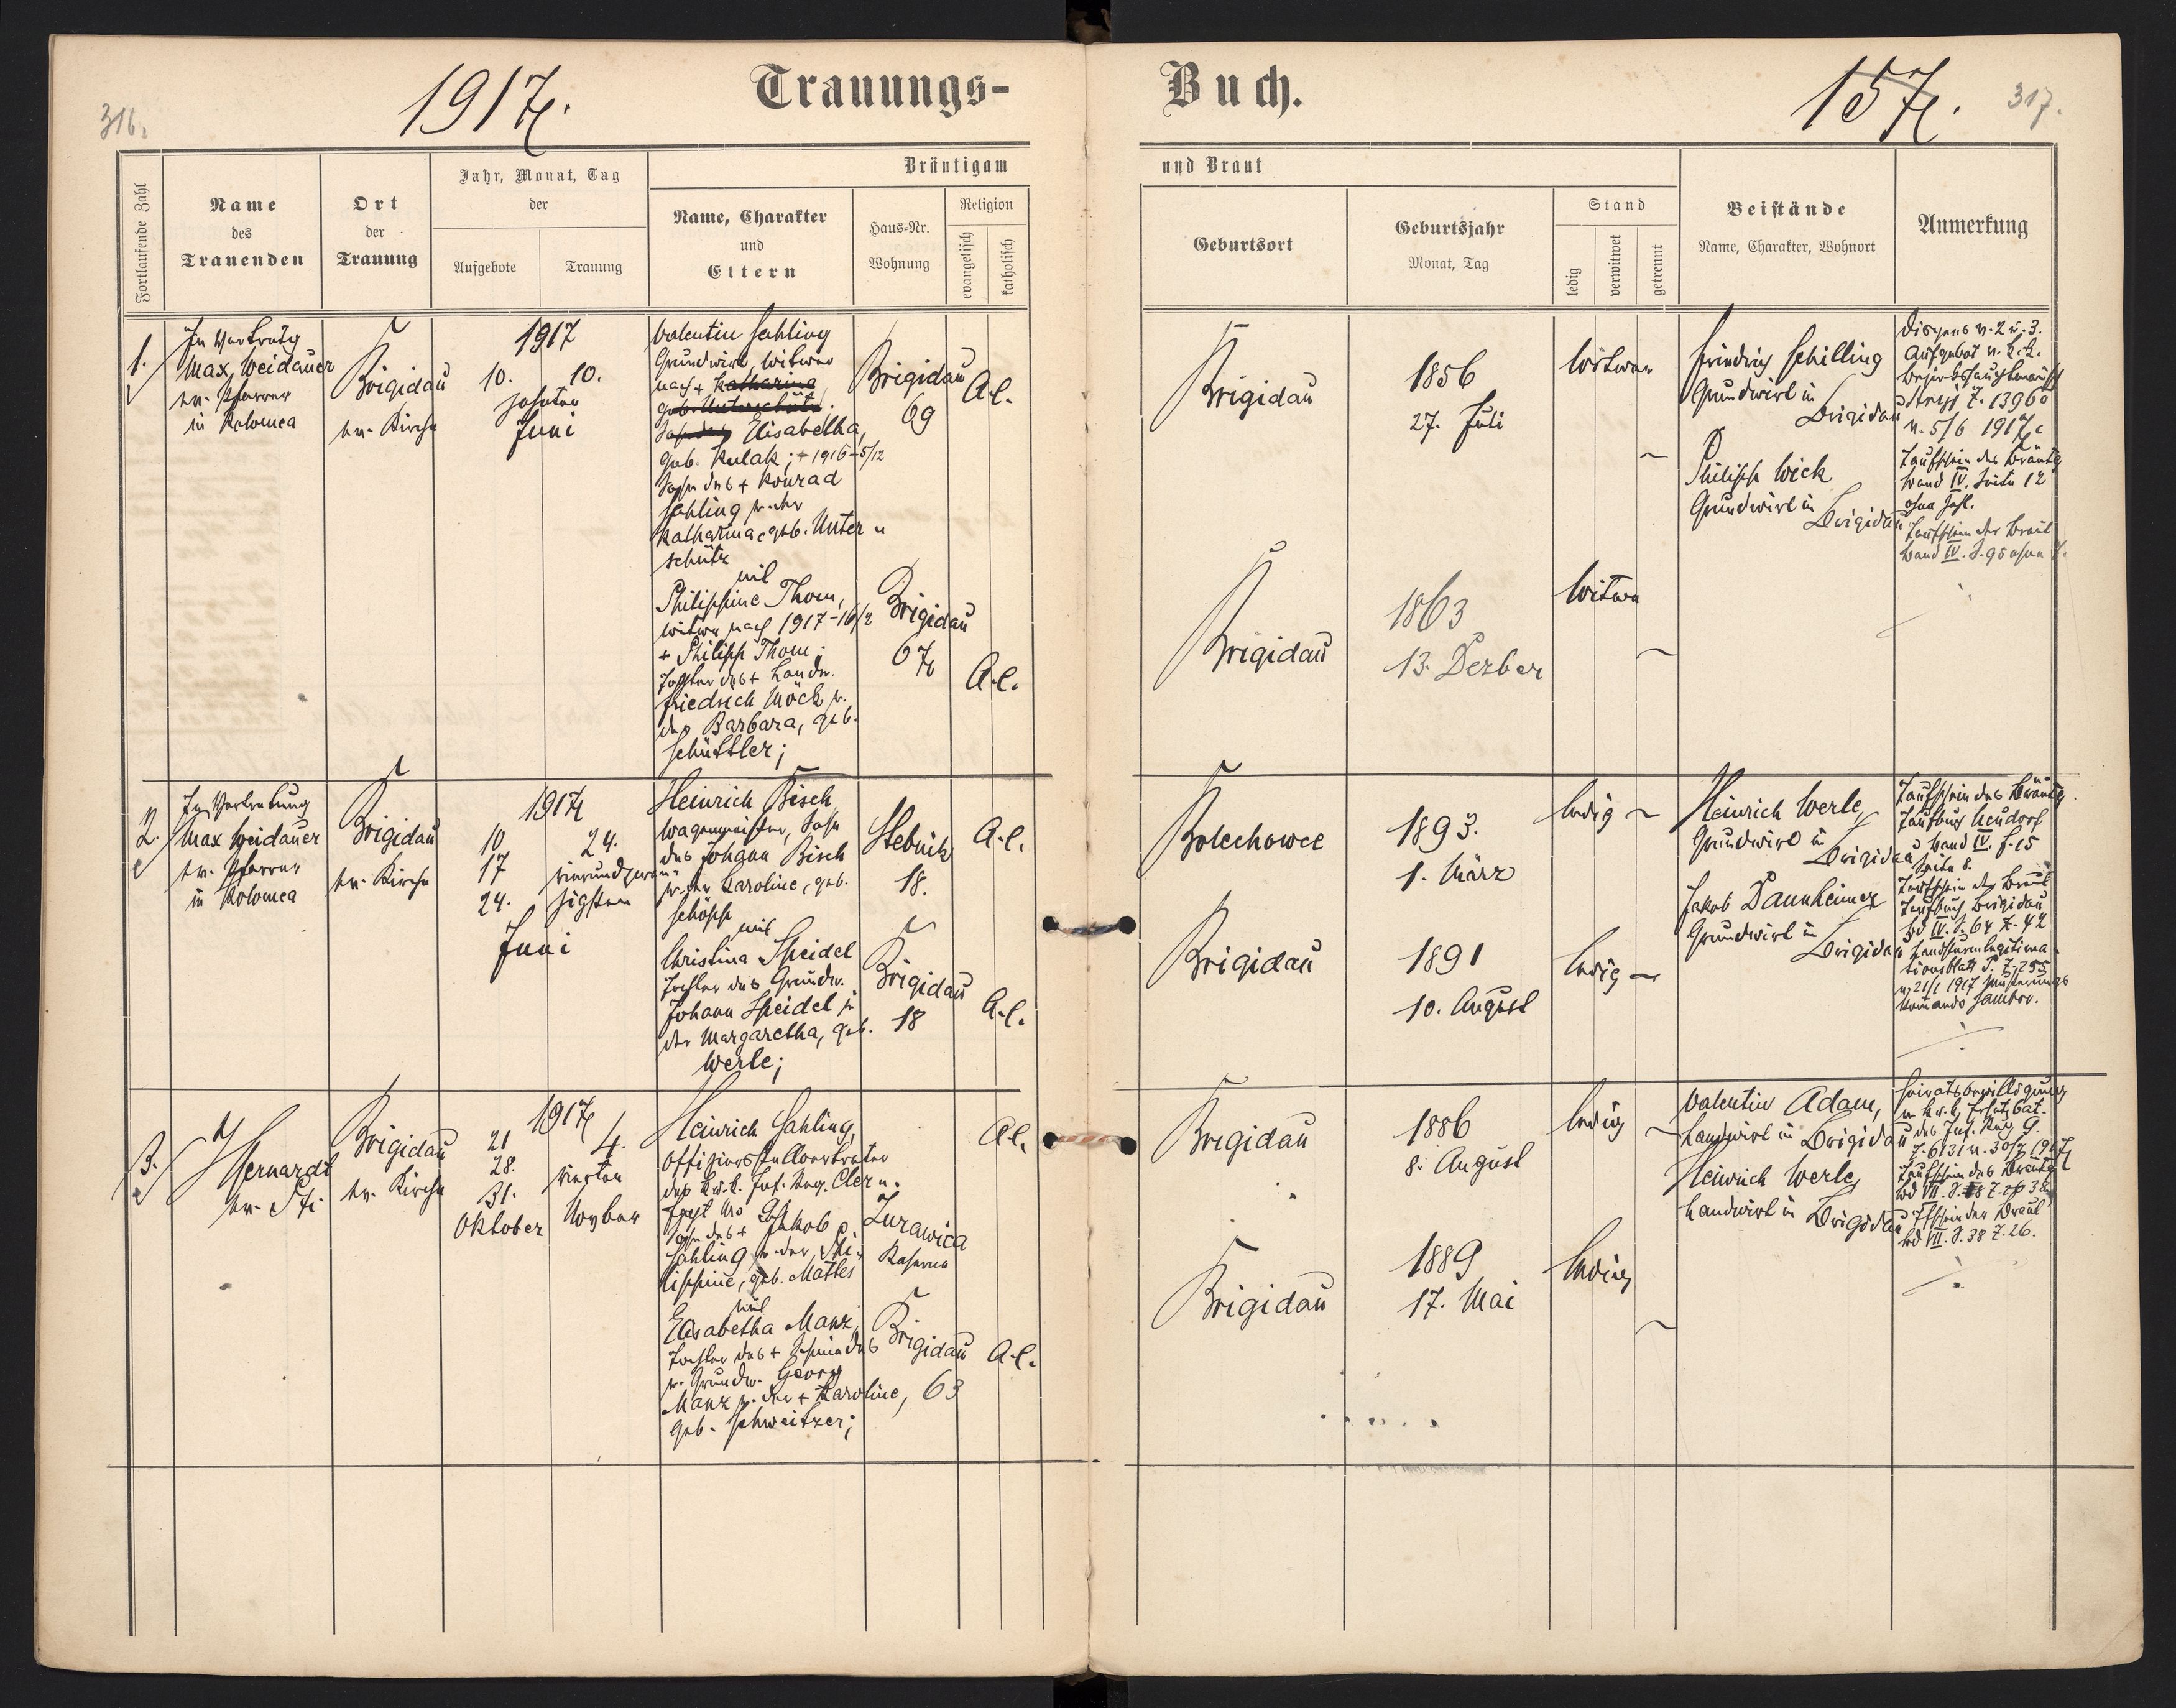 316.
1917.
Trauungs-
Buch.
157.
317.
Fortlaufende Zahl
Name
des
Trauenden
Ort
der
Trauung
Jahr, Monat, Tag
der
Aufgebote
Trauung
Bräutigam
Name, Charakter
und
Eltern
Haus-Nr.
Wohnung
Religion
evangelisch
katholisch
und Braut
Geburtsort
Geburtsjahr
Monat, Tag
Stand
ledig
verwitwet
getrennt
Beistände
Name, Charakter, Wohnort
Anmerkung
1.
In Vertretg
Max Weidauer
ev. Pfarrer
in Kolomea
Brigidau
ev. Kirche
1917
10. 10.
zehnten
Juni
Valentin Sahling
Grundwirt, Witwer
nach + Katharina
geb. Unterschütz.
Elisabetha,
geb. Kulak; + 1916-5/12
Sohn des + Konrad
Sahling u. der
Katharina, geb. Unter
schütz
mit
Philippine Thom,
Witwe nach 1917-16/2
+ Philipp Thom;
Tochter des + Landw.
Friedrich Möck u.
der Barbara, geb.
Schüttler;
Brigidau
69
A.C.
Brigidau
67
A.C.
Brigidau
1856
27. Juli
Witwer
Brigidau
1863
13. Dezber
Witwe
Friedrich Schilling
Grundwirt in
Brigidau
Philipp Wick
Grundwirt in
Brigidau
Dispens v. 2 u. 3.
Aufgebot v. k.k.
Bezirkshauptmannsch
Stryj Z. 13960
v. 5/6 1917.
Taufschein des Bräutg
Band IV. Seite 12
ohne Zahl.
Taufschein der Braut
Band IV. S. 95 ohne Z.
2.
In Vertretung
Max Weidauer
ev. Pfarrer
in Kolomea
Brigidau
ev. Kirche
1917
10 24.
17 vierundzwan-
24. zigsten
Juni
Heinrich Bisch
Wagenmeister, Sohn
des Johann Bisch
u. der Karoline, geb.
Schöpp
mit
Christina Speidel
Tochter des Grundw.
Johann Speidel u.
der Margaretha, geb.
Werle;
Stebnik
18.
A.C.
Brigidau
18
A.C.
Bolechowce
1893.
1. März
ledig
Brigidau
1891
10. August
ledig
Heinrich Werle,
Grundwirt in
Brigidau
Jakob Dannheimer
Grundwirt in
Brigidau
Taufschein des Bräutg.
Taufbuch Neudorf
Band IV. f. 15
Seite 8.
Taufschein der Braut
Taufbuch Brigidau
Bd IV. S. 64 Z. 42
Landsturmlegitima-
tionsblatt P. Z. 255
v. 21/1 1917 Musterungs
Komando Sambor.
3.
Hernardt
ev. Pfr
Brigidau
ev. Kirche
1917
21 4.
28. vierten
31. Novber
Oktober
Heinrich Sahling,
Offiziersstellvertreter
des k.u.k. Inf. Reg.
Sohn des + Jakob
Sahling u. der Phi-
lippine, geb. Mattes
mit
Elisabetha Manz,
Tochter des + Schmiedes
u. Grundw. Georg
Manz u. der + Karoline,
geb. Schweitzer;
Zurawica
Kaserne
A.C.
Brigidau
63
A.C.
Brigidau
1886
8. August
ledig
Brigidau
1889
17. Mai
ledig
Valentin Adam,
Landwirt in Brigidau
Heinrich Werle,
Landwirt in Brigidau
Heiratsbewilligung
v. k.u.k. Ersatzbat.
des Inf. Reg 9.
Z. 6131 v. 30/7 1917
Taufschein des Bräutg
Bd VII. S. 8 Z. 38
Tfschein der Braut
Bd VII. S. 38 Z. 26.